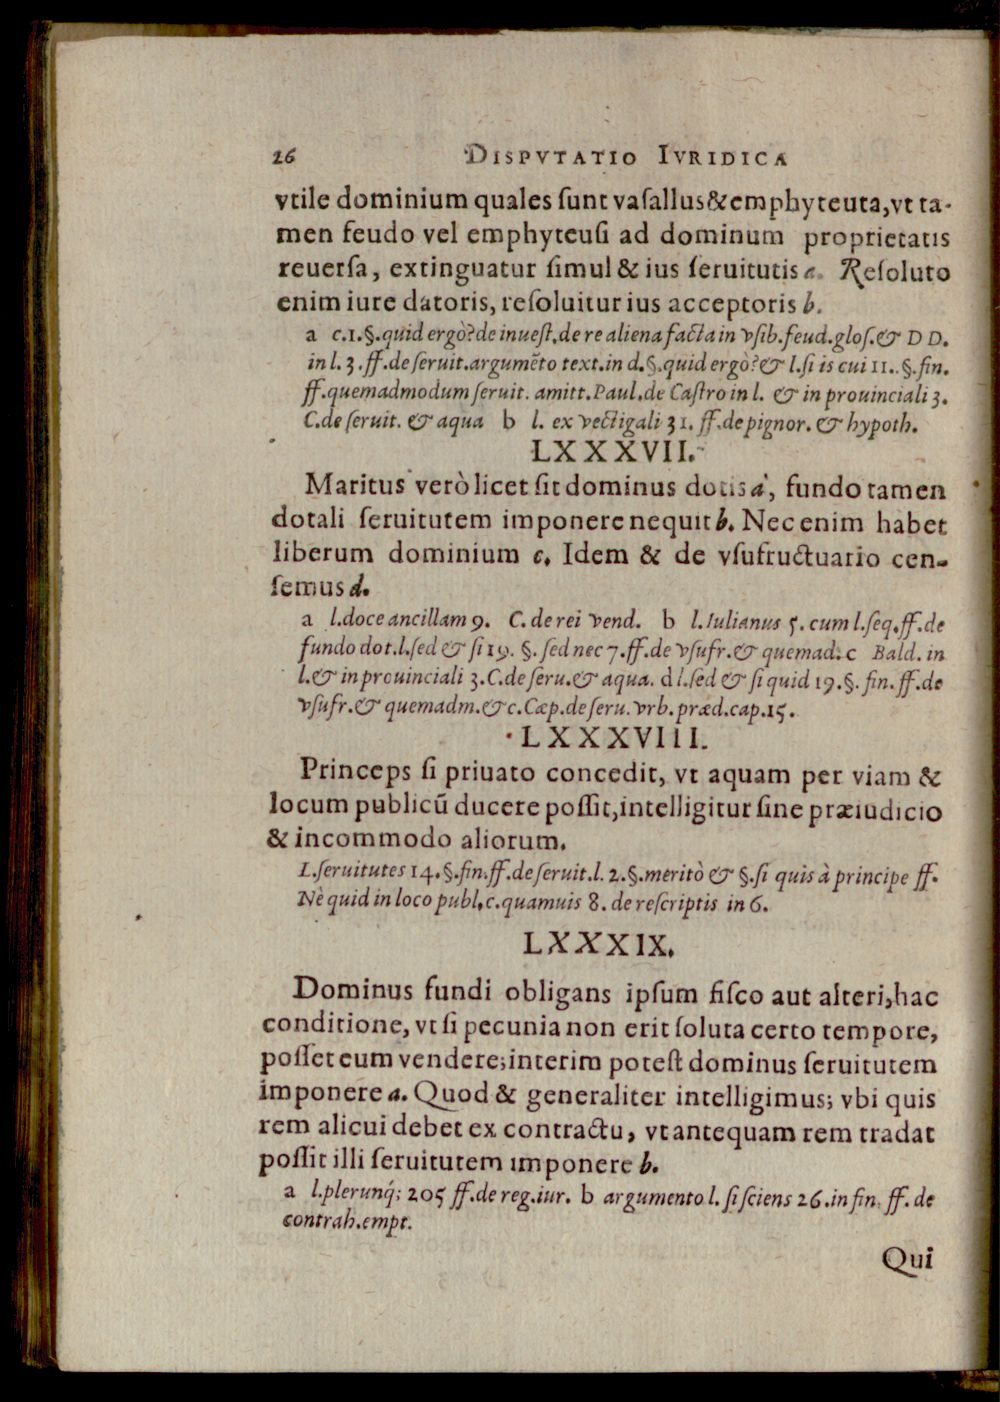 26 DISPVTATIO IVRIDICA
vtile dominium quales ſunt vaſallus&emphyteuta,vt ta-
men feudo vel emphyteuſi ad dominum proprietatis
reuerſa, extinguatur ſimul & ius ſeruitutis a. Reſoluto
enim iure datoris, reſoluitur ius acceptoris b.
a c.1.§.quid ergò?de inueſt.de re aliena facta in vſib.feud.gloſ.& D D.
in l. 3 .ff.de ſeruit.argumẽto text.in d.§.quid ergò?& l.ſi is cui 11..§.fin.
ff.quemadmodum ſeruit. amitt.Paul.de Caſtro in l. & in prouinciali 3.
C.de ſeruit. & aqua b l. ex vectigali 31. ff.de pignor. & hypoth.
LXXXVII.
Maritus verò licet ſit dominus dotis a, fundo tamen
dotali ſeruitutem imponere nequit b. Nec enim habet
liberum dominium c. Idem & de vſufructuario cen-
ſemus d.
a l.doce ancillam 9. C. de rei vend. b l. Iulianus 5. cum l.ſeq.ff.de
fundo dot.l.ſed & ſi 19. §. ſed nec 7.ff.de vſufr.& quemad. c Bald. in
l.& in prouinciali 3.C.de ſeru.& aqua. d l.ſed & ſi quid 19.§. fin. ff.de
vſufr.& quemadm.&c.Cæp.de ſeru.vrb.præd.cap.15.
LXXXVIII.
Princeps ſi priuato concedit, vt aquam per viam &
locum publicũ ducere poſſit,intelligitur ſine præiudicio
& incommodo aliorum.
L.ſeruitutes 14.§.fin.ff.de ſeruit.l. 2.§.meritò & §.ſi quis à principe ff.
Nè quid in loco publ.c.quamuis 8. de reſcriptis in 6.
LXXXIX.
Dominus fundi obligans ipſum fiſco aut alteri,hac
conditione, vt ſi pecunia non erit ſoluta certo tempore,
poſſet eum vendere;interim poteſt dominus ſeruitutem
imponere a. Quod & generaliter intelligimus; vbi quis
rem alicui debet ex contractu, vt antequam rem tradat
poſſit illi ſeruitutem imponere b.
a l.plerunq́; 205 ff.de reg.iur. b argumento l. ſi ſciens 26.in fin. ff. de
contrah.empt.
Qui